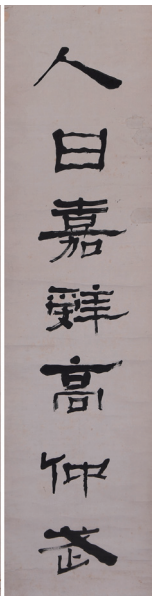 人日嘉辤高仲武